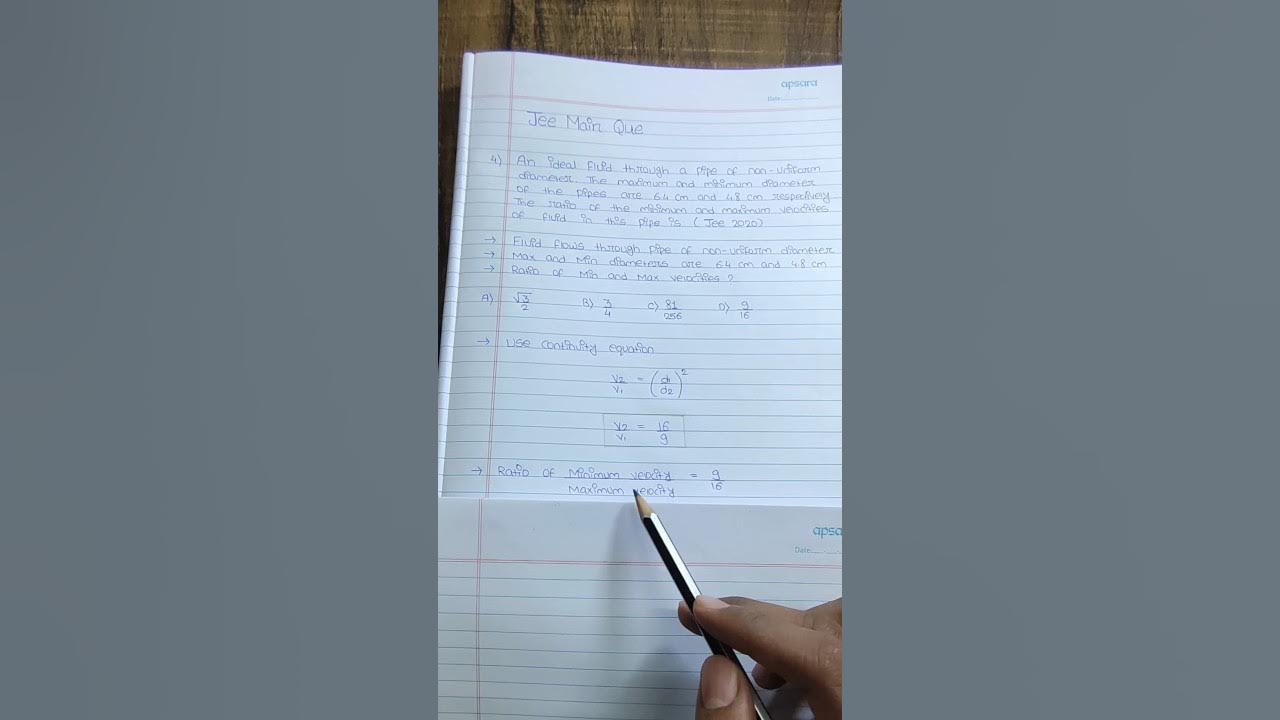 apsara
Date:
Jee Main Que
4) An ideal fluid through a pipe of non-uniform
diameter. The maximum and minimum diameter
of the pipes are 6.4 cm and 4.8 cm respectively
The ratio of the minimum and maximum velocities
of fluid in this pipe is (Jee 2020)
→ Fluid flows through pipe of non-uniform diameter
→ Max and Min diameters are 6.4 cm and 4.8 cm
→ Ratio of Min and Max velocities ?
A) √3/2 B) 3/4 C) 81/256 D) 9/16
→ Use continuity equation
v2/v1 = (d1/d2)²
v2/v1 = 16/9
→ Ratio of Minimum velocity/Maximum velocity = 9/16
apsa
Date: